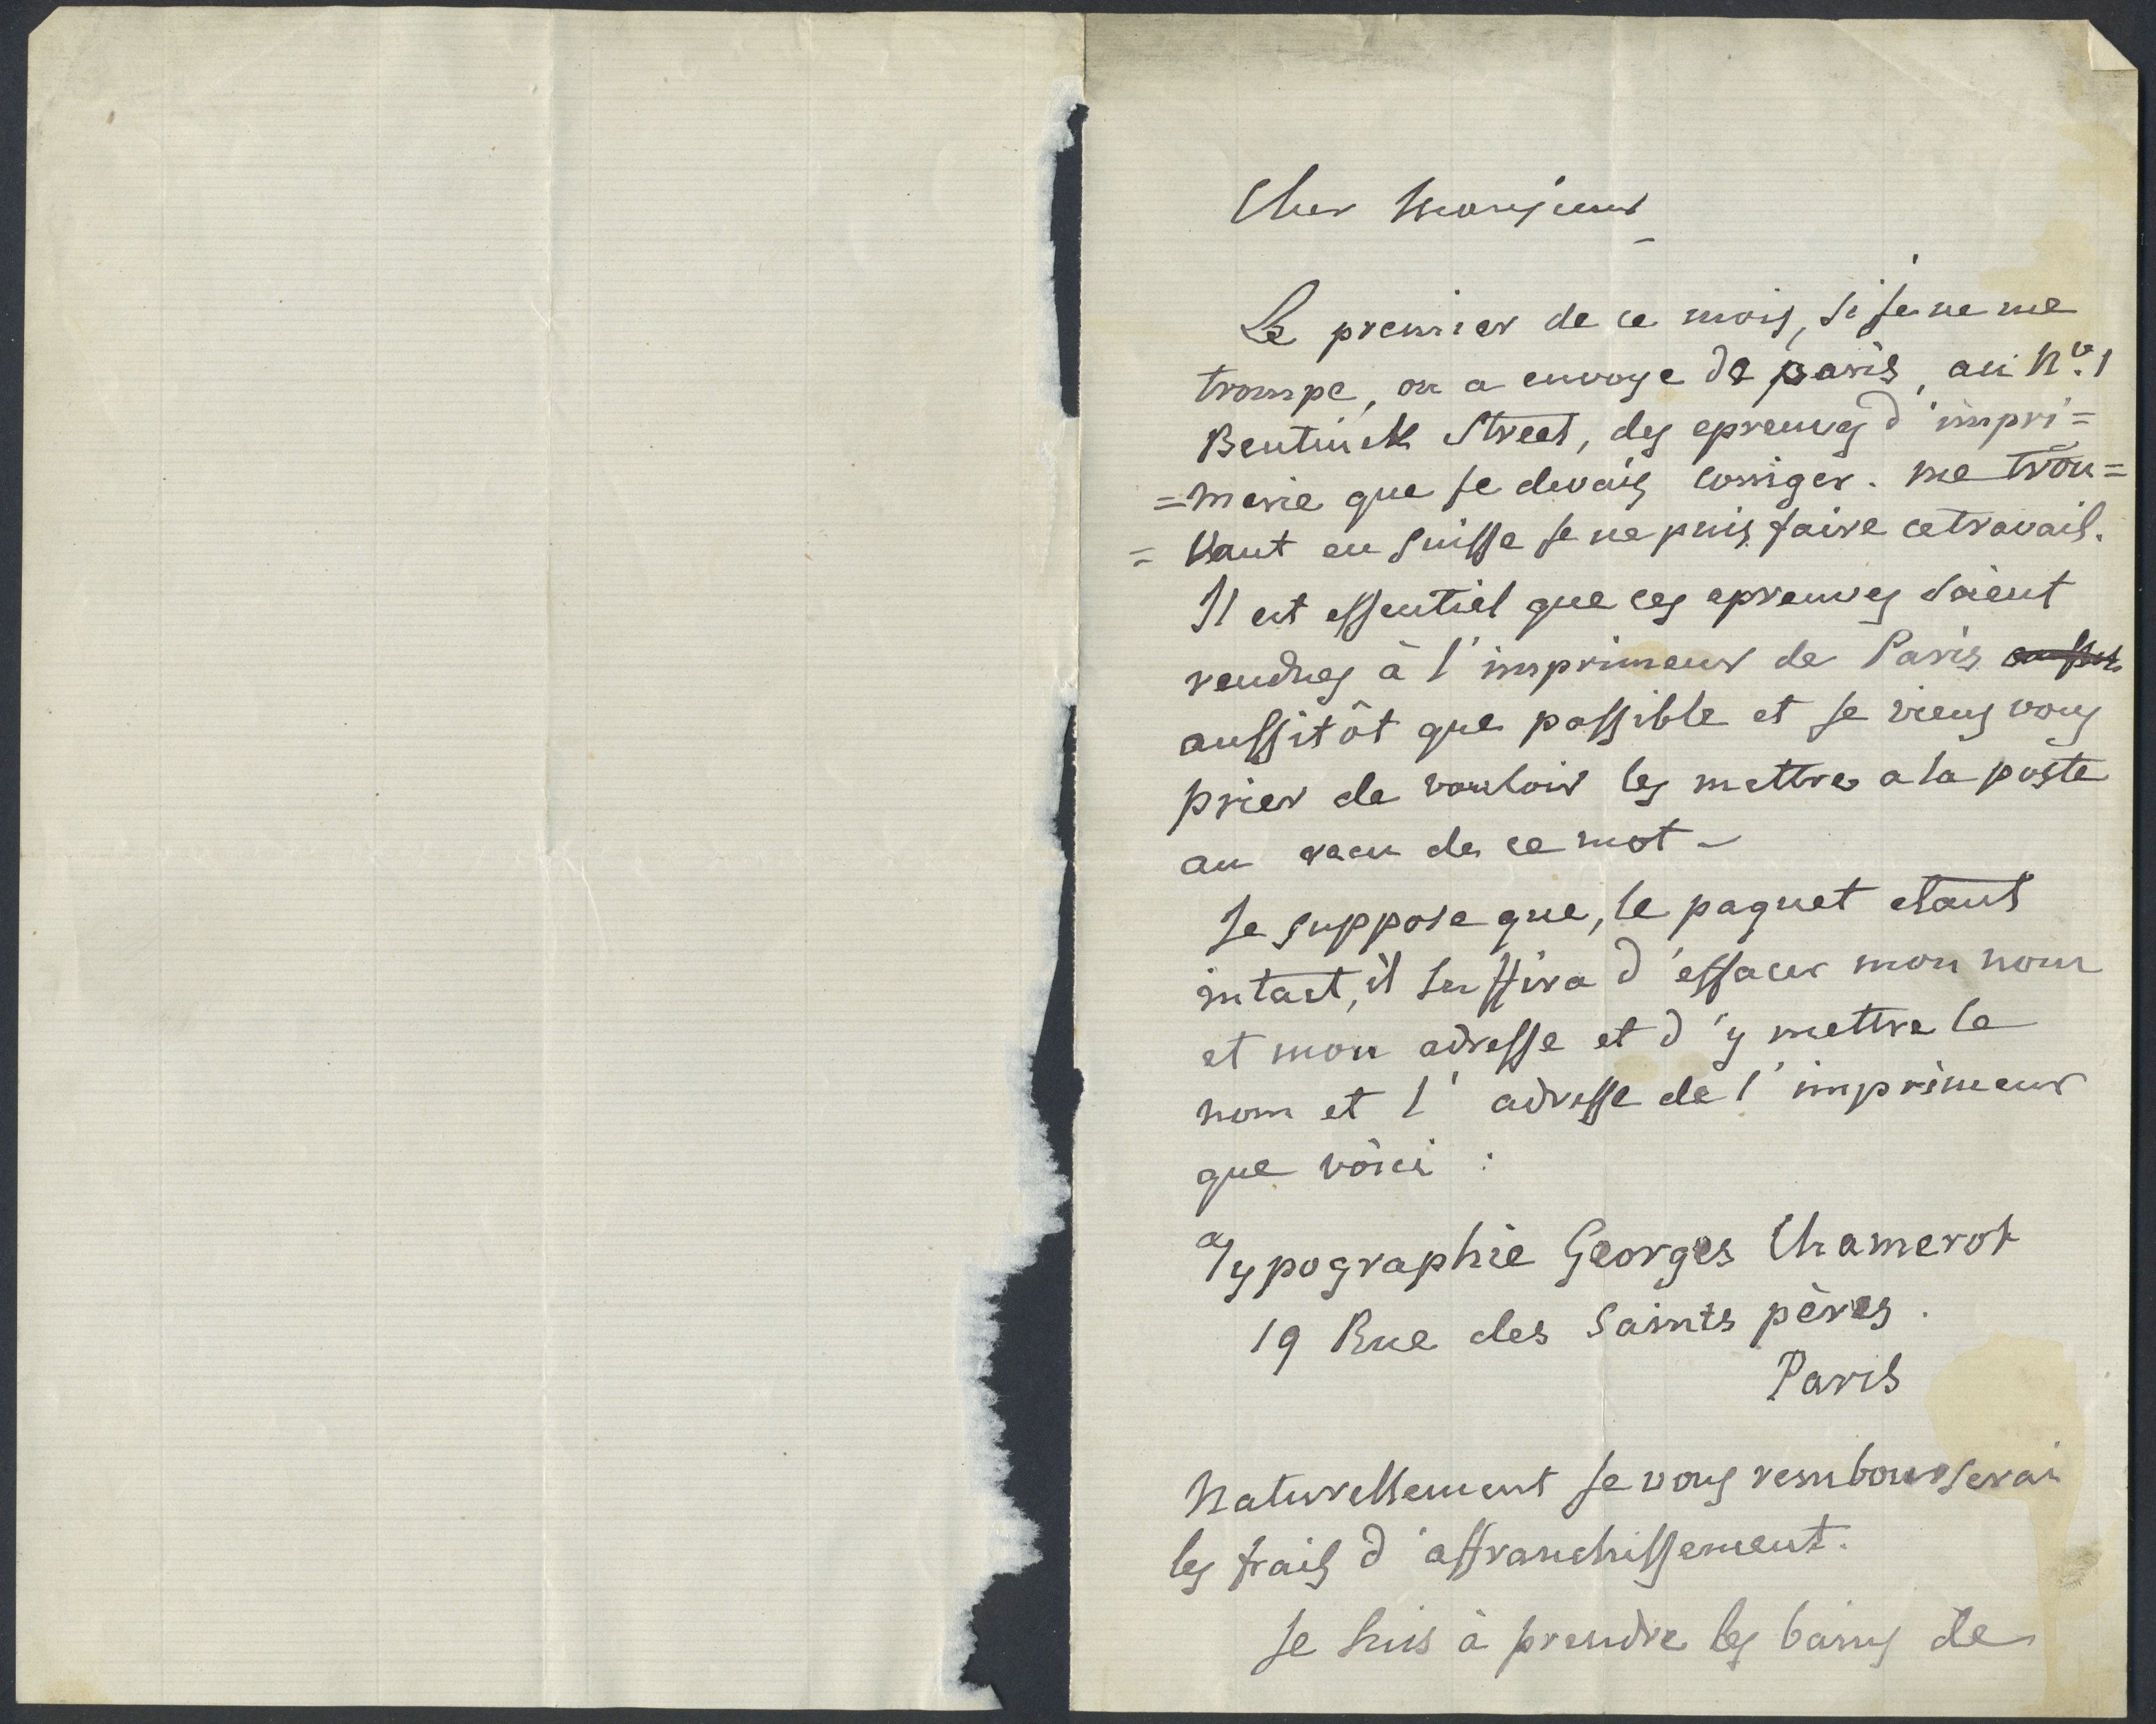 Cher Monsieur
Le premier de ce mois, si je ne me
trompe, on a envoye de paris, au No. 1
Bentinck Street, des epreuves d'impri=
=merie que je devais corriger. me trou=
=vant en Suisse je ne puis faire ce travail.
Il est essentiel que ces epreuves soient
rendues à l'imprimeur de Paris
aussitôt que possible et je viens vous
prier de vouloir les mettre a la poste
au recu de ce mot -
Je suppose que, le paquet etant
intact, il suffira d'effacer mon nom
et mon adresse et d'y mettre le
nom et l'adresse de l'imprimeur
que voici :
Typographie Georges Chamerot
19 Rue des Saints pères.
Paris
Naturellement je vous rembourserai
les frais d'affranchissement.
Je suis à prendre les bains de